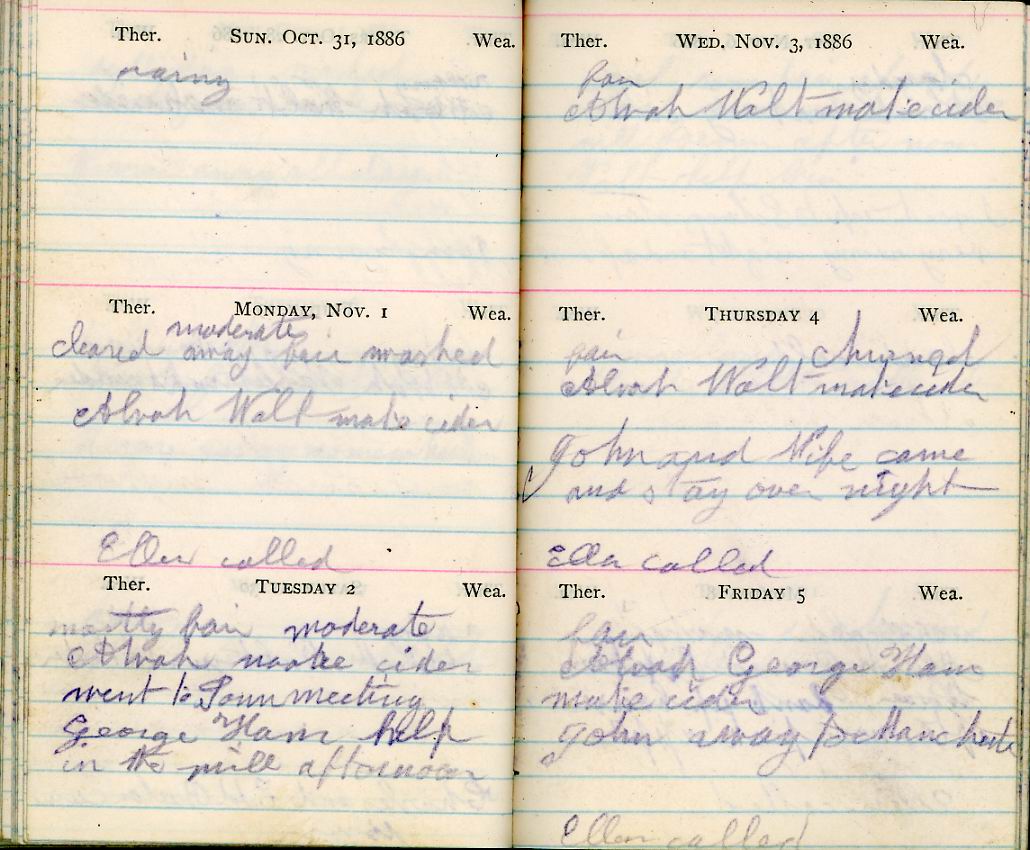 Ther. SUN. OCT. 31, 1886 Wea.
rainy
Ther. MONDAY, NOV. 1 Wea.
moderate
cleared away fair washed
Alvah Walt make cider
Ellen called
Ther. TUESDAY 2 Wea.
mostly fair moderate
Alvah make cider
went to Town meeting
George Ham help
in the mill afternoon
Ther. WED. NOV. 3, 1886 Wea.
fair
Alvah Walt make cider
Ther. THURSDAY 4 Wea.
fair churned
Alvah Walt make cider
John and Wife came
and stay over night
Ellen called
Ther. FRIDAY 5 Wea.
fair
Alvah George Ham
make cider
John away to Manchester
Ellen called